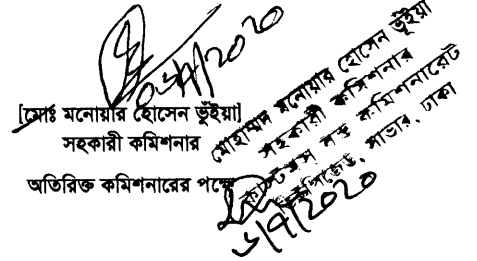 [মোঃ মনোয়ার হোসেন ভূঁইয়া]
সহকারী কমিশনার
অতিরিক্ত কমিশনারের পক্ষে
মোহাম্মদ মনোয়ার হোসেন ভূঁইয়া
সহকারী কমিশনার
কাস্টমস বন্ড কমিশনারেট
ইপিজেড, সাভার, ঢাকা